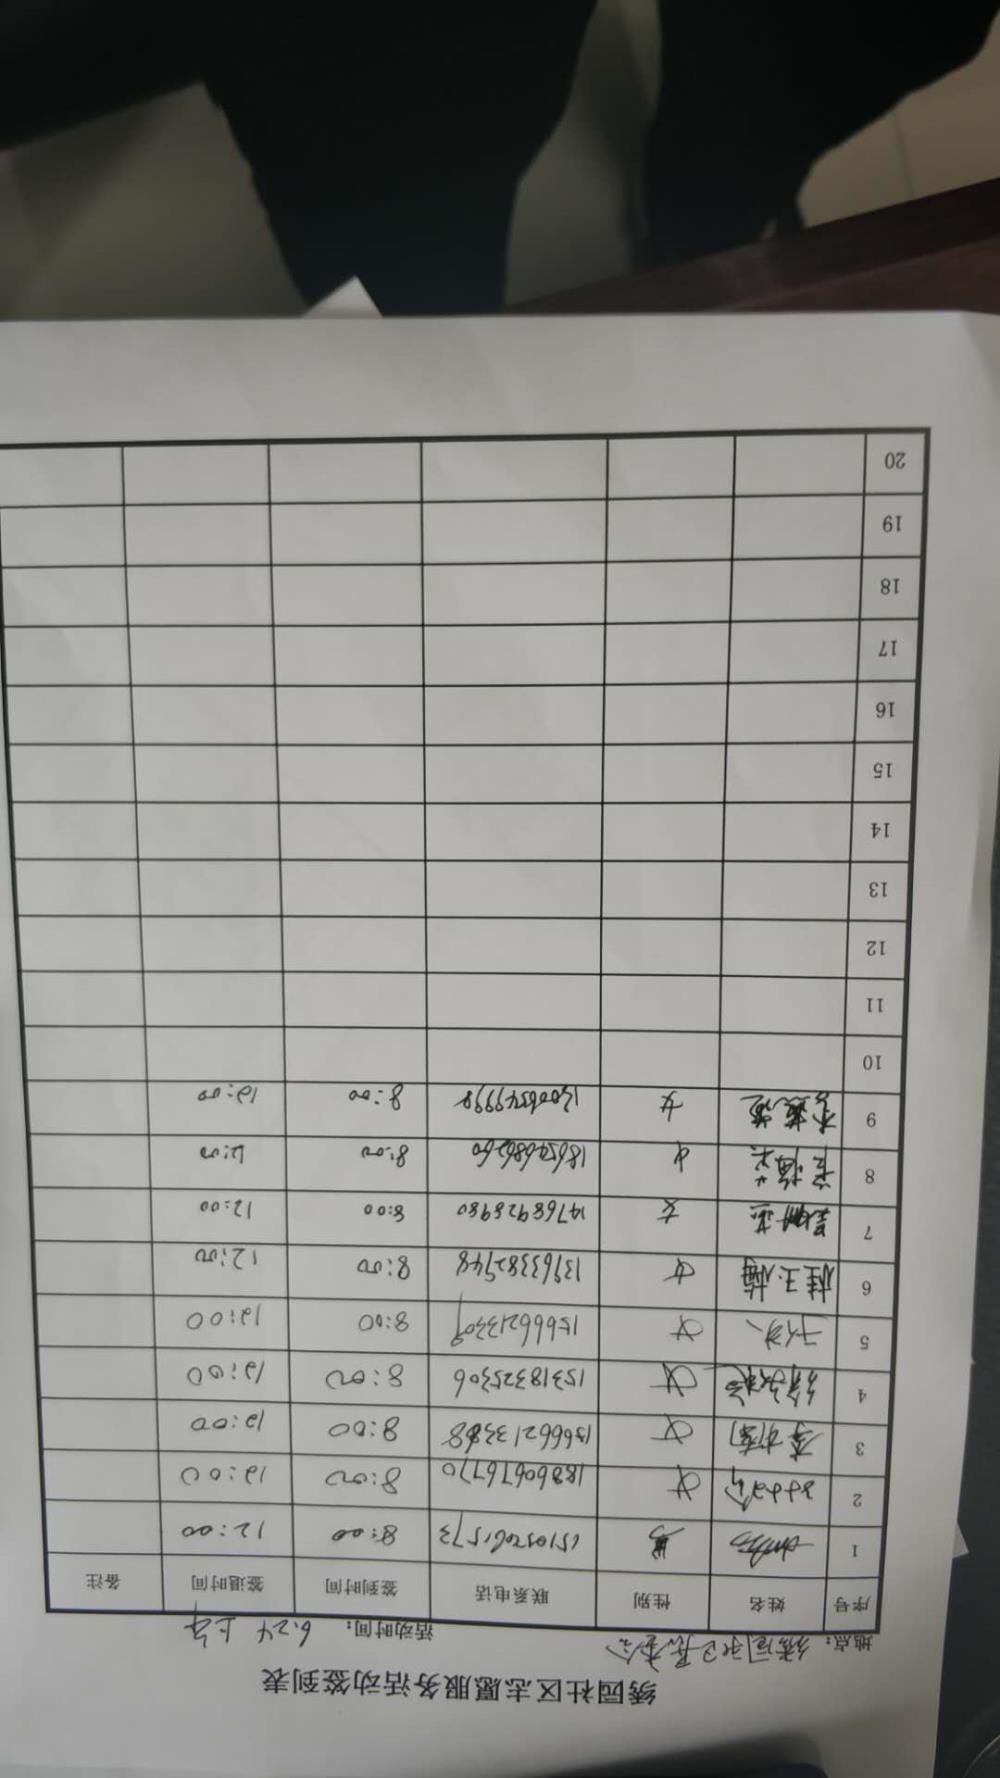 绣园社区志愿服务活动签到表
地点：绣园社区居委会 活动时间：6.24 上午
序号 姓名 性别 联系电话 签到时间 签退时间 备注
1 男 8:00 12:00
2 女 18860676770 8:00 12:00
3 女 8:00 12:00
4 女 15318325306 8:00 12:00
5 女 15666213309 8:00 12:00
6 桂玉梅 女 13963382948 8:00 12:00
7 女 14768928980 8:00 12:00
8 女 18654686260 8:00 12:00
9 女 8:00 12:00
10
11
12
13
14
15
16
17
18
19
20